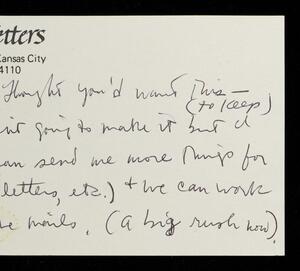 etters
Kansas City
4110
Thought you'd want this —
(to keep)
n't going to make it but I
an send me more things for
letters, etc.) + we can work
e mails. (a big rush now).